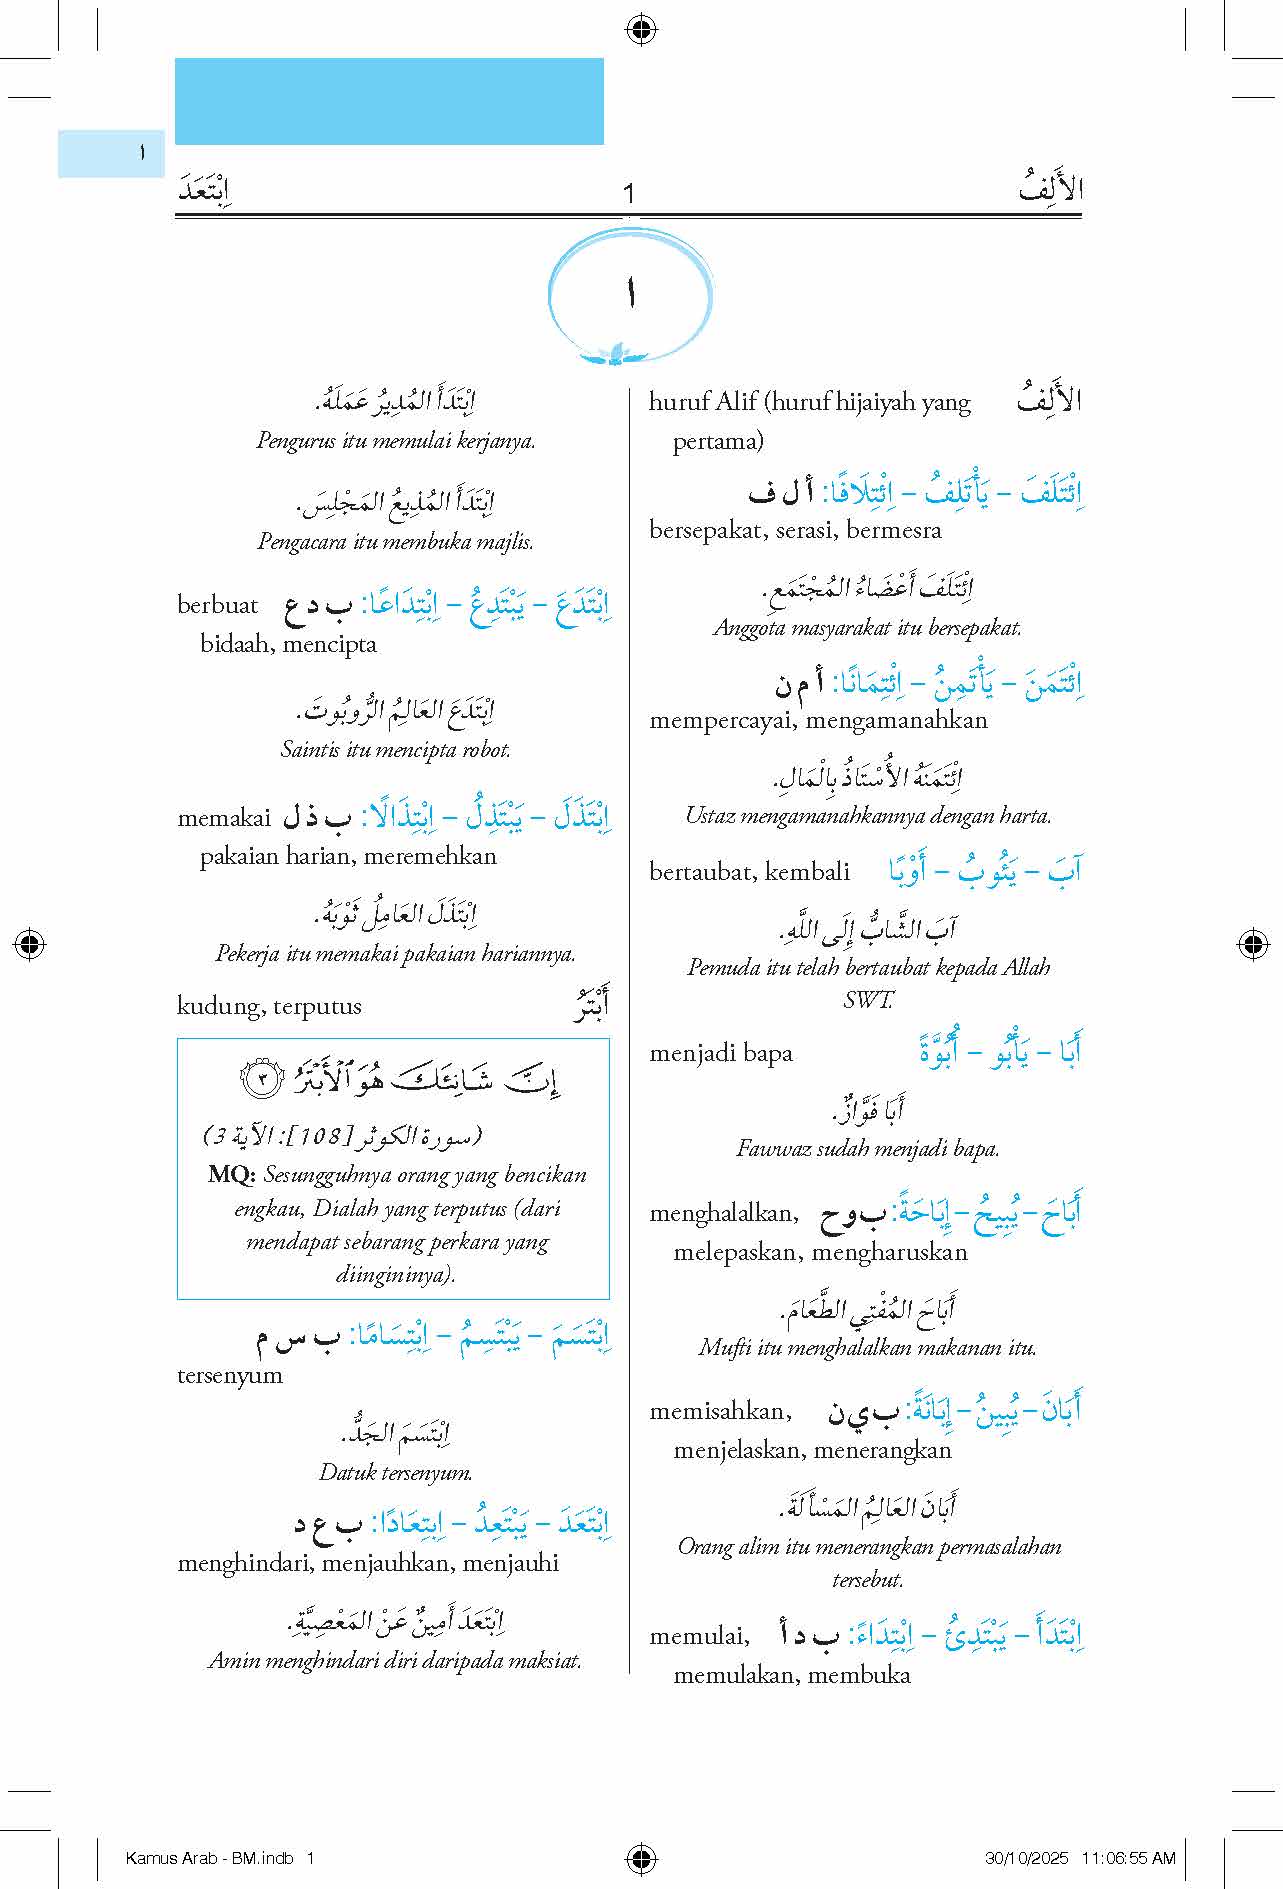 ا
الأَلِفُ 1 اِبْتَعَدَ
ا
الأَلِفُ huruf Alif (huruf hijaiyah yang
pertama)
اِئْتَلَفَ – يَأْتَلِفُ – اِئْتِلَافًا: أ ل ف
bersepakat, serasi, bermesra
اِئْتَلَفَ أَعْضَاءُ المُجْتَمَعِ.
Anggota masyarakat itu bersepakat.
اِئْتَمَنَ – يَأْتَمِنُ – اِئْتِمَانًا: أ م ن
mempercayai, mengamanahkan
اِئْتَمَنَهُ الأُسْتَاذُ بِالْمَالِ.
Ustaz mengamanahkannya dengan harta.
آبَ – يَئُوبُ – أَوْبًا bertaubat, kembali
آبَ الشَّابُّ إِلَى اللَّهِ.
Pemuda itu telah bertaubat kepada Allah
SWT.
أَبَا – يَأْبُو – أُبُوَّةً menjadi bapa
أَبَا فَوَّازٌ.
Fawwaz sudah menjadi bapa.
أَبَاحَ – يُبِيحُ – إِبَاحَةً: ب و ح menghalalkan,
melepaskan, mengharuskan
أَبَاحَ المُفْتِي الطَّعَامَ.
Mufti itu menghalalkan makanan itu.
أَبَانَ – يُبِينُ – إِبَانَةً: ب ي ن memisahkan,
menjelaskan, menerangkan
أَبَانَ العَالِمُ المَسْأَلَةَ.
Orang alim itu menerangkan permasalahan
tersebut.
اِبْتَدَأَ – يَبْتَدِئُ – اِبْتِدَاءً: ب د أ memulai,
memulakan, membuka
اِبْتَدَأَ المُدِيرُ عَمَلَهُ.
Pengurus itu memulai kerjanya.
اِبْتَدَأَ المُذِيعُ المَجْلِسَ.
Pengacara itu membuka majlis.
اِبْتَدَعَ – يَبْتَدِعُ – اِبْتِدَاعًا: ب د ع berbuat
bidaah, mencipta
اِبْتَدَعَ العَالِمُ الرُّوبُوتَ.
Saintis itu mencipta robot.
اِبْتَذَلَ – يَبْتَذِلُ – اِبْتِذَالًا: ب ذ ل memakai
pakaian harian, meremehkan
اِبْتَذَلَ العَامِلُ ثَوْبَهُ.
Pekerja itu memakai pakaian hariannya.
أَبْتَرُ kudung, terputus
إِنَّ شَانِئَكَ هُوَ ٱلْأَبْتَرُ ٣
(سورة الكوثر [108]: الآية 3)
MQ: Sesungguhnya orang yang bencikan
engkau, Dialah yang terputus (dari
mendapat sebarang perkara yang
diingininya).
اِبْتَسَمَ – يَبْتَسِمُ – اِبْتِسَامًا: ب س م
tersenyum
اِبْتَسَمَ الجَدُّ.
Datuk tersenyum.
اِبْتَعَدَ – يَبْتَعِدُ – اِبتِعَادًا: ب ع د
menghindari, menjauhkan, menjauhi
اِبْتَعَدَ أَمِينٌ عَنْ المَعْصِيَّةِ.
Amin menghindari diri daripada maksiat.
Kamus Arab - BM.indb 1 30/10/2025 11:06:55 AM